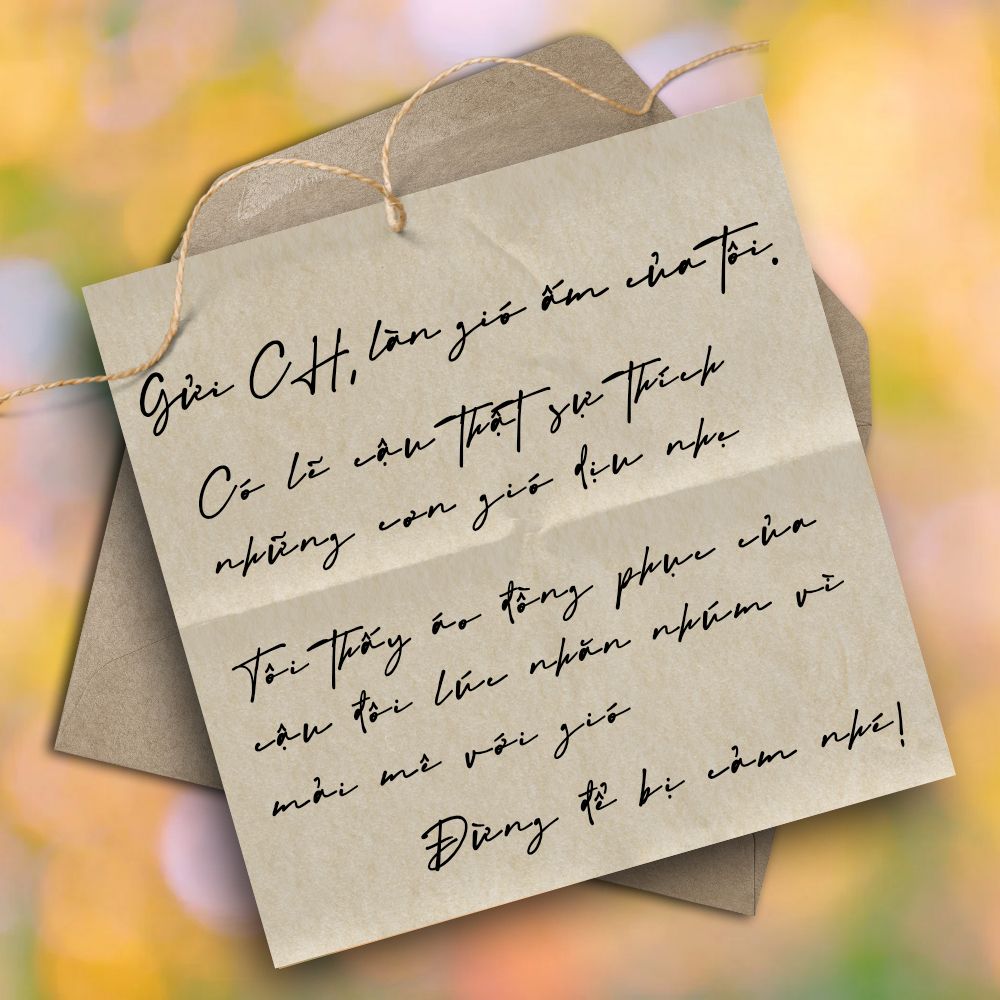 Gửi CH, làn gió ấm của tôi.
Có lẽ cậu thật sự thích
những cơn gió dịu nhẹ
Tôi thấy áo đồng phục của
cậu đôi lúc nhăn nhúm vì
mải mê với gió
Đừng để bị cảm nhé!